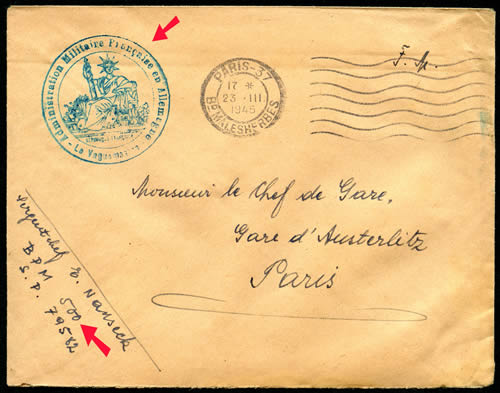 Administration Militaire Française en Allemagne
- Le Vaguemestre -
PARIS - 37
17 *
23 - III
1945
Bd MALESHERBES
F. M.
Monsieur le Chef de Gare,
Gare d'Austerlitz
Paris
Sergent chef E. Nanseck
BPM 500
S. P. 79582